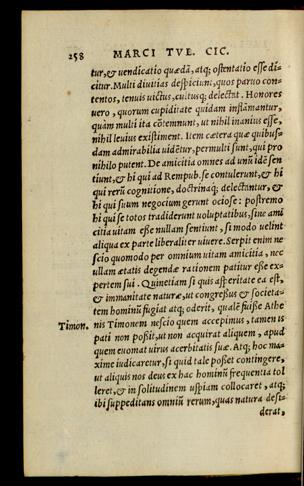 258 MARCI TVE. CIC.
tur, & uendicatio quædã, atq; ostentatio esse di-
citur. Multi diuitias despiciunt, quos paruo con-
tentos, tenuis uictus, cultusq; delectat. Honores
uero, quorum cupiditate quidam inflãmantur,
quàm multi ita cõtemnunt, ut nihil inanius esse,
nihil leuius existiment. Item cætera quæ quibus-
dam admirabilia uidẽtur, permulti sunt, qui pro
nihilo putent. De amicitia omnes ad unũ idẽ sen
tiunt, & hi qui ad Rempub. se contulerunt, & hi
qui rerũ cognitione, doctrinaq; delectãntur, & hi
qui suum negocium gerunt ociose: postremo
hi qui se totos tradiderunt uoluptatibus, sine ami
citia uitam esse nullam sentiunt, si modo uelint
aliqua ex parte liberaliter uiuere. Serpit enim ne
scio quomodo per omnium uitam amicitia, nec
ullam ætatis degendæ rationem patitur esse ex-
pertem sui. Quinetiam si quis asperitate ea est,
& immanitate naturæ, ut congressus & societa-
tem hominũ fugiat atq; oderit, qualẽ fuisse Athe
Timon. nis Timonem nescio quem accepimus, tamen is
pati non possit, ut non acquirat aliquem, apud
quem euomat uirus acerbitatis suæ. Atq; hoc ma-
xime iudicaretur, si quid tale posset contingere,
ut aliquis nos deus ex hac hominũ frequentia tol
leret, & in solitudinem uspiam collocaret, atq;
ibi suppeditans omniũ rerum, quas natura desi-
derat,